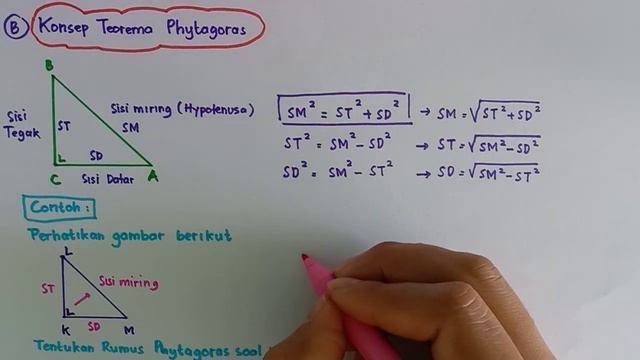 B Konsep Teorema Phytagoras
B
Sisi Tegak
ST
Sisi miring (Hypotenusa)
SM
SD
C Sisi Datar A
SM² = ST² + SD² → SM = √ST² + SD²
ST² = SM² - SD² → ST = √SM² - SD²
SD² = SM² - ST² → SD = √SM² - ST²
Contoh :
Perhatikan gambar berikut
L
ST
Sisi miring
K SD M
Tentukan Rumus Phytagoras soal